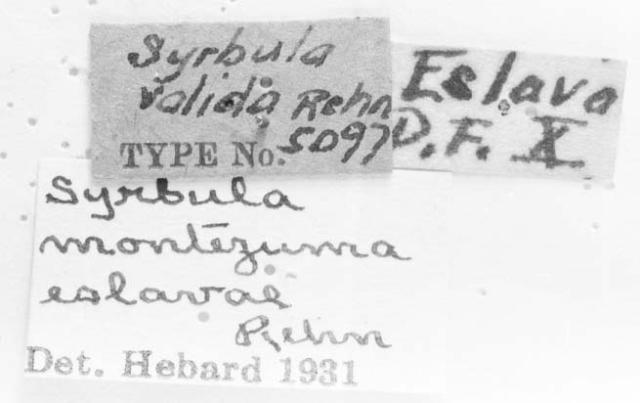 Syrbula
valida Rehn
TYPE No. 5097
Eslava
D.F. X
Syrbula
montezuma
eslavae
Rehn
Det. Hebard 1931